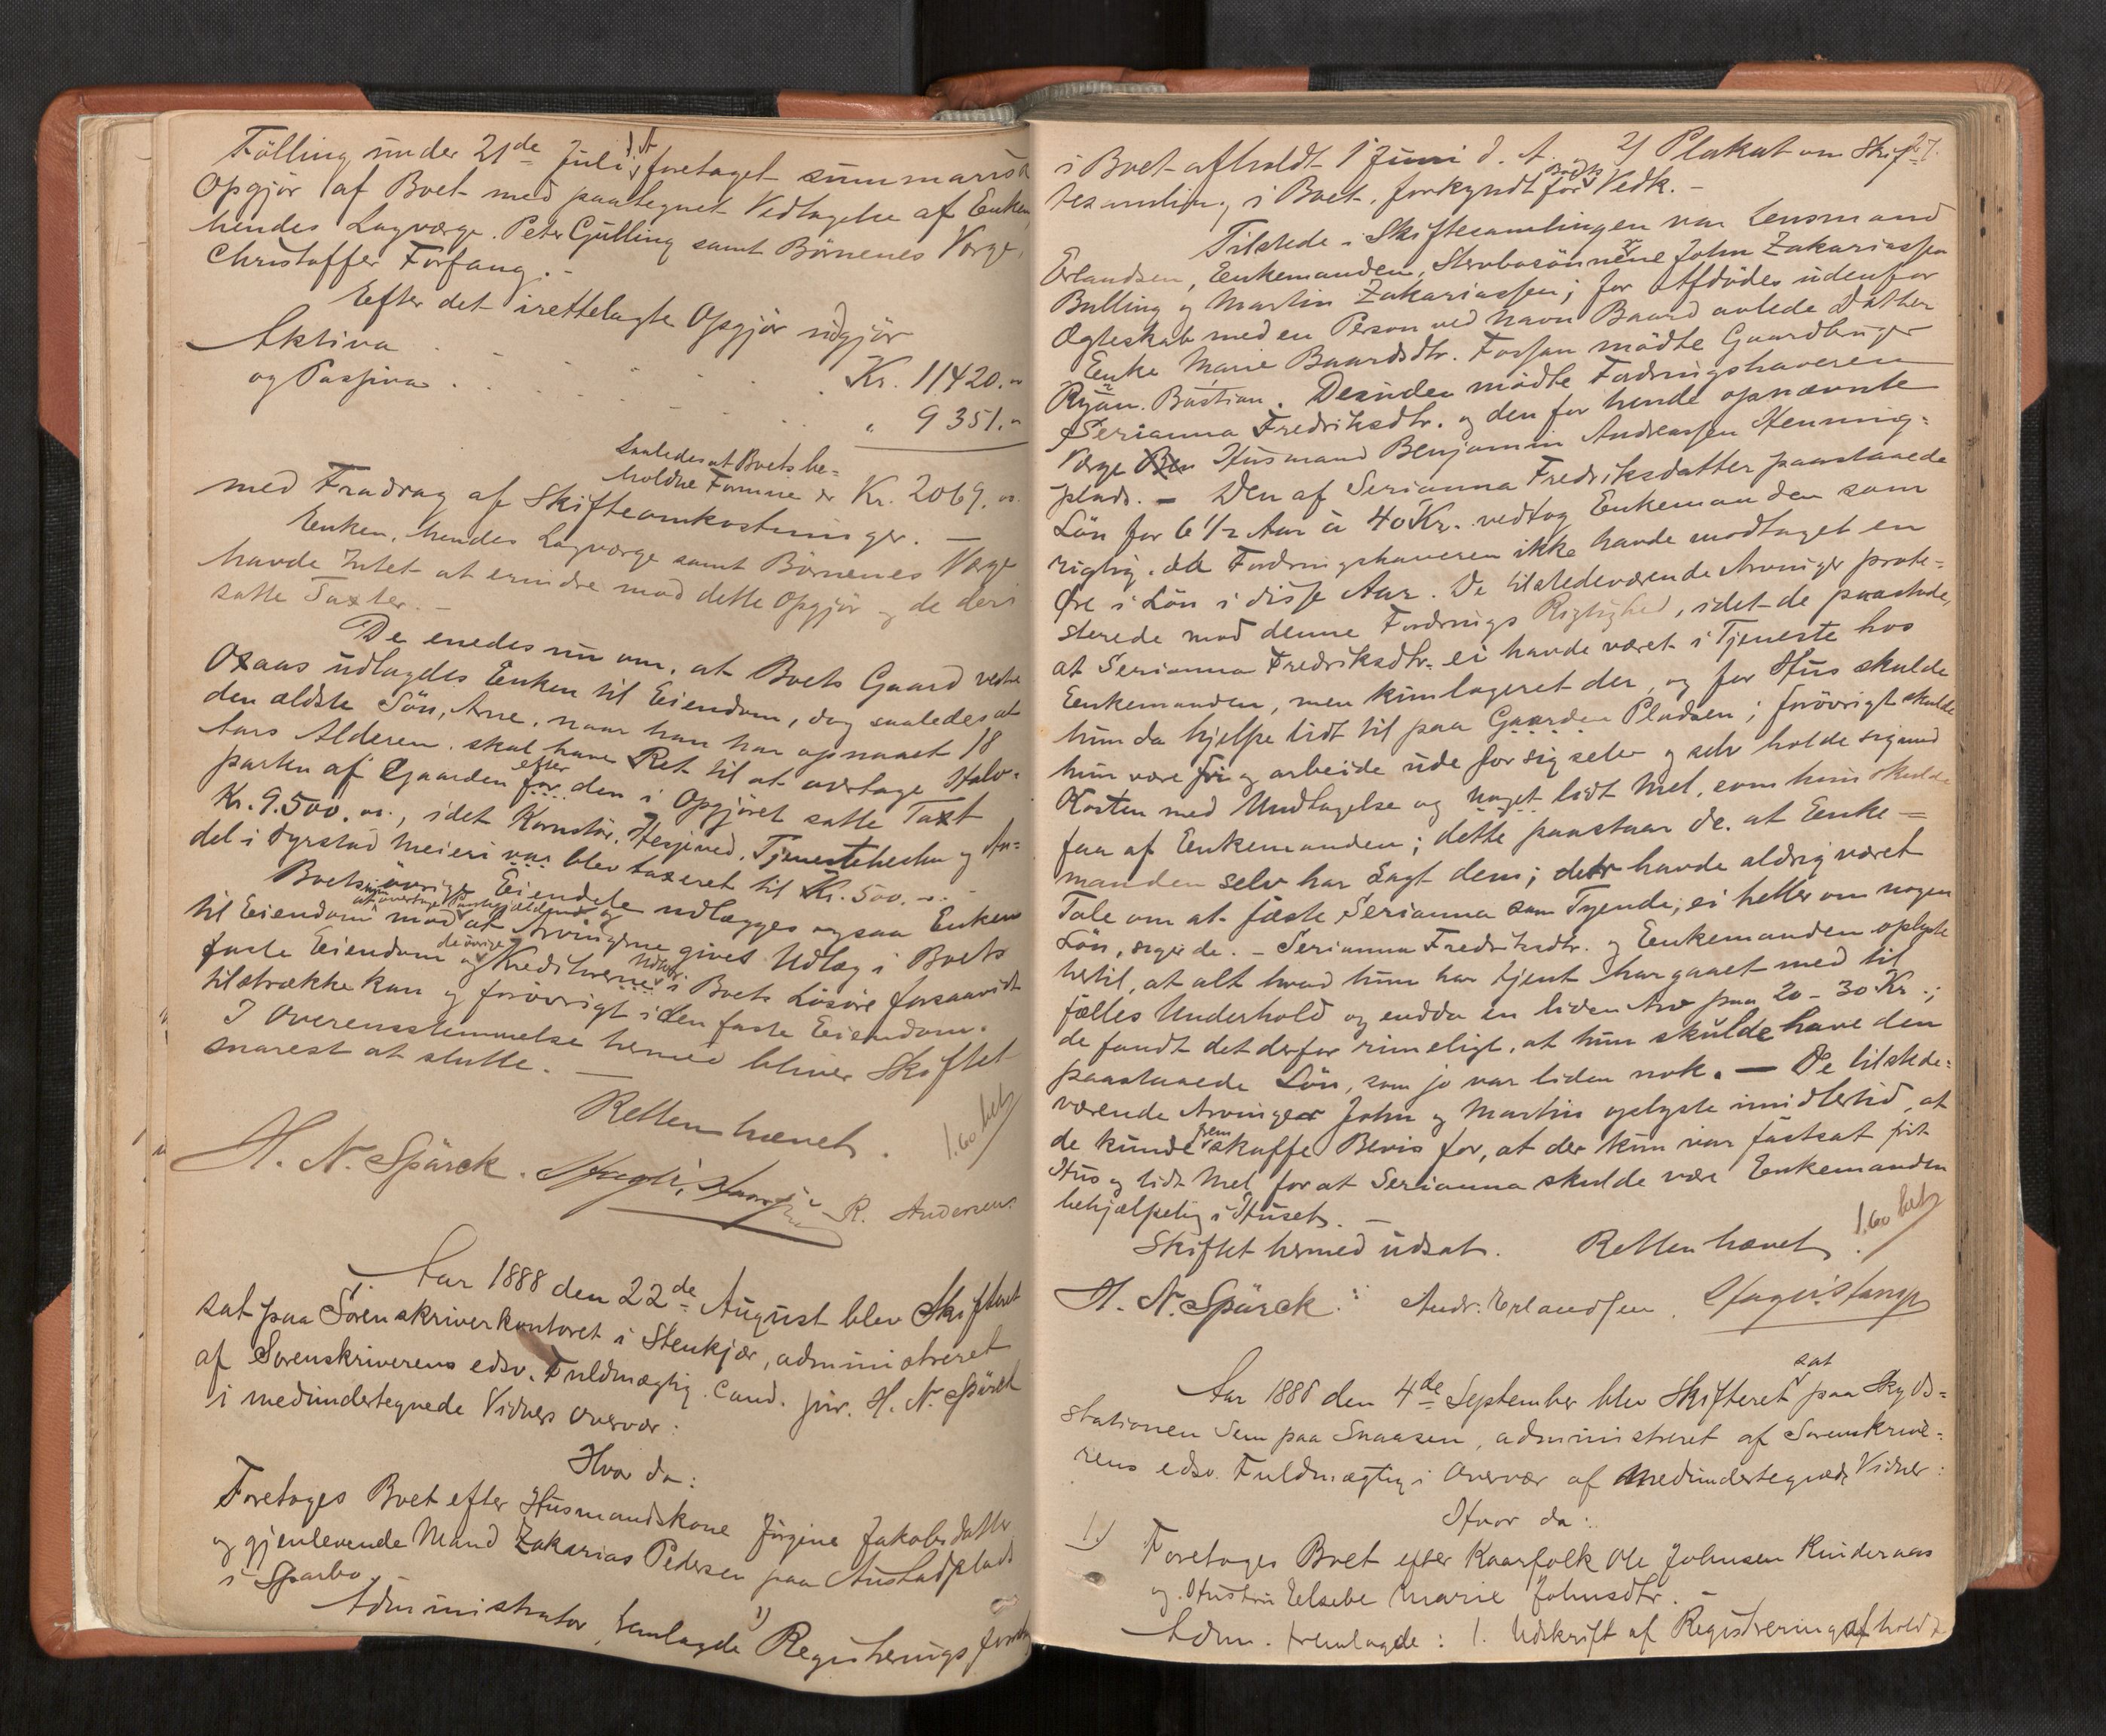 Fölling under 21de Juli d. A. foretaget summarisk
Opgjör af Boet med paategnet Vedtagelse af Enken,
hendes Lagværge Peter Gulling samt Börnenes Værge,
Christoffer Forfang. -
Efter det irettelagte Opgjör udgjör
Aktiva . . . . . Kr. 11420. "
og Passiva . . . . . " 9351. "
saaledes at Boets be=
holdne Formue er Kr. 2069. "
med Fradrag af Skifteomkostninger. -
Enken, hendes Lagværge samt Börnenes Værge
havde Intet at erindre mod dette Opgjör og de deri
satte Taxter. -
De enedes nu om, at Boets Gaard vestre
Oxaas udlagdes Enken til Eiendom, dog saaledes at
den ældste Sön, Arne, naar han har opnaaet 18
Aars Alderen skal have Ret til at overtage Halv=
parten af Gaarden for efter den i Opgjöret satte Taxt
Kr. 9.500. ", idet Kornstör, Hesjeved, Tjenestehesten og An=
del i Dyrstad Meieri var blev taxeret til Kr. 500. " -
Boets övrige Eiendele udlægges ogsaa Enken
til Eiendom mod at overtage og
at Arvingerne gives Udlæg i Boets
faste Eiendom og de övrige Kreditorerne Udlæg i Boets Lösöre forsaavidt
tilstrække kan og forövrigt i den faste Eiendom.
I Overensstemmelse hermed bliver Skiftet
snarest at slutte. -
Retten hævet.
1.60 bet
H. N. Spärck. R. Andersen.
Aar 1888 den 22de August blev Skifteret
sat paa Sorenskriverkontoret i Stenkjær, administreret
af Sorenskriverens edsv. Fuldmægtig, Cand. jur. H. N. Spärck
i medundertegnede Vidners Overvær:
Hvor da:
Foretoges Boet efter Husmandskone Jörgine Jakobsdatter
og gjenlevende Mand Zakarias Pedersen paa Austadplads
i Sparbo.
Administrator fremlagde 1) Registreringsforretn
27.
i Boet afholdt 1 Juni d. A. 2) Plakat om Skif=
tesamling i Boet, forkyndt for Vedk. -
Tilstede i Skiftesamlingen var Lensmand
Erlandsen, Enkemanden, Stervbosönnerne John Zakariassen
Bulling og Martin Zakariassen; for Afdödes udenfor
Ægteskab med en Person ved Navn Baard avlede Datter
Enke Marie Baardsdtr. Forfan mödte Gaardbruger
Ryan. Bastian. Desuden mödte Fordringshaveren
Serianna Fredriksdtr. og den for hende opnævnte
Værge Ben Husmand Benjamin Andreassen Henning=
plads. - Den af Serianna Fredriksdatter paastaaede
Lön for 6 1/2 Aar à 40 Kr. vedtog Enkemanden som
rigtig, da Fordringshaveren ikke havde modtaget en
Öre i Lön i disse Aar. De tilstedeværende Arvinger prote=
sterede mod denne Fordrings Rigtighed, idet de paastode,
at Serianna Fredriksdtr. ei havde været i Tjeneste hos
Enkemanden, men kun logeret der, og for Hus skulde
hun da hjelpe lidt til paa Gaarden Pladsen; forövrigt skulde
hun være fri og arbeide ude for sig selv og selv holde sig med
Kosten med Undtagelse og noget lidt Mel, som hun skulde
faa af Enkemanden; dette paastaar de, at Enke=
manden selv har sagt dem; der havde aldrig været
Tale om at fæste Serianna som Tyende, ei heller om nogen
Lön, siger de. - Serianna Fredriksdtr. og Enkemanden oplyste
hertil, at alt hvad hun har tjent har gaaet med til
fælles Underhold og endda en liden Arv paa 20 - 30 Kr.;
de fandt det derfor rimeligt, at hun skulde have den
paastaaede Lön, som jo var liden nok. - De tilstede=
værende Arvinger John og Martin oplyste imidlertid, at
de kunde fremskaffe Bevis for, at der kun var fastsat frit
Hus og lidt Mel for at Serianna skulde være Enkemanden
behjælpelig i Huset. -
Skiftet hermed udsat. Retten hævet.
1.60 bet
H. N. Spärck. Andr. Erlandsen.
Aar 1888 den 4de September blev Skifteret sat paa Skyds=
stationen Sem paa Snaasen, administreret af Sorenskrive=
rens edsv. Fuldmægtig i Overvær af medundertegnede Vidner:
Hvor da:
1.) Foretoges Boet efter Kaarfolk Ole Johnsen Kinderaas
og Hustru Elsebe Marie Johnsdtr. -
Adm. fremlagde: 1. Udskrift af Registrering afholdt